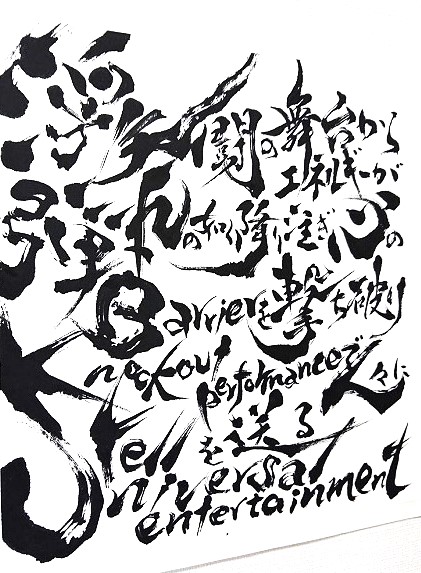 浮 闘の舞台から
エネルギーが
弾丸の如く降り注ぎ心の
Barrierを撃ち破り
Knockout performanceで人々に
Yellを送る
Universal
entertainment